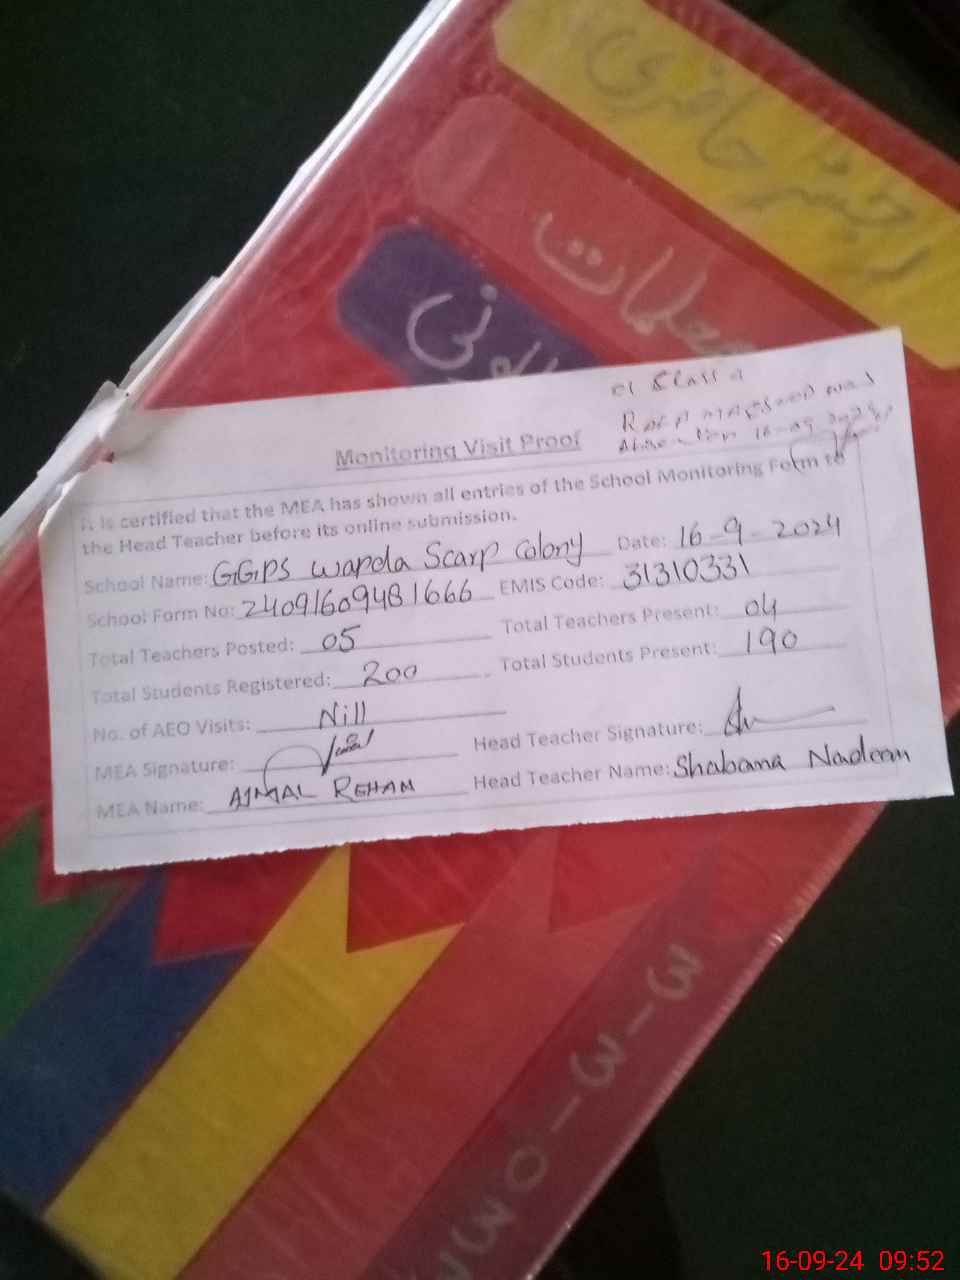 رجسٹر حاضری
معلمات
Monitoring Visit Proof
It is certified that the MEA has shown all entries of the School Monitoring Form to
the Head Teacher before its online submission.
School Name: GGPS Wapda Scarp Colony Date: 16-9-2024
School Form No: 24091609481666 EMIS Code: 31310331
Total Teachers Posted: 05 Total Teachers Present: 04
Total Students Registered: 200 Total Students Present: 190
No. of AEO Visits: Nill
MEA Signature: Head Teacher Signature:
MEA Name: AJMAL REHAN Head Teacher Name: Shabana Nadeem
16-09-24 09:52